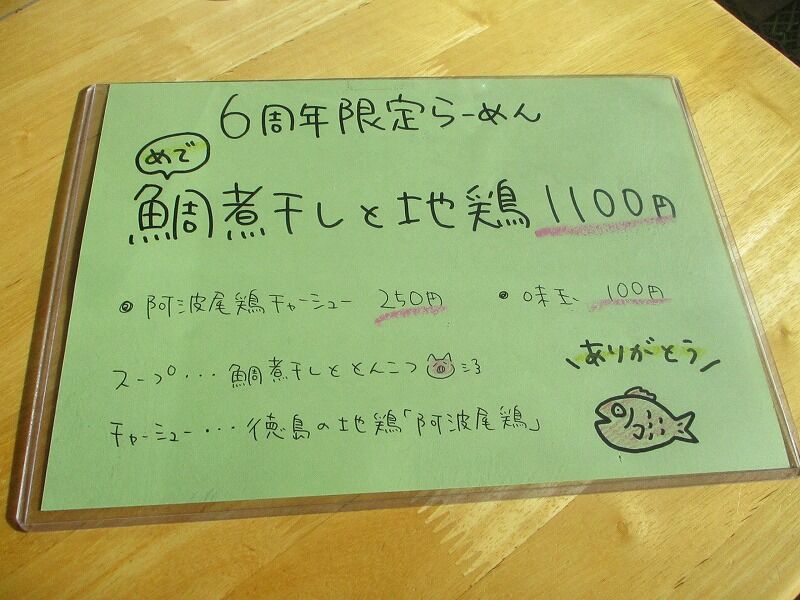 6周年限定らーめん
めで
鯛煮干しと地鶏 1100円
阿波尾鶏チャーシュー 250円 ・味玉 100円
ありがとう
スープ・・・鯛煮干しととんこつ
チャーシュー・・・徳島の地鶏「阿波尾鶏」